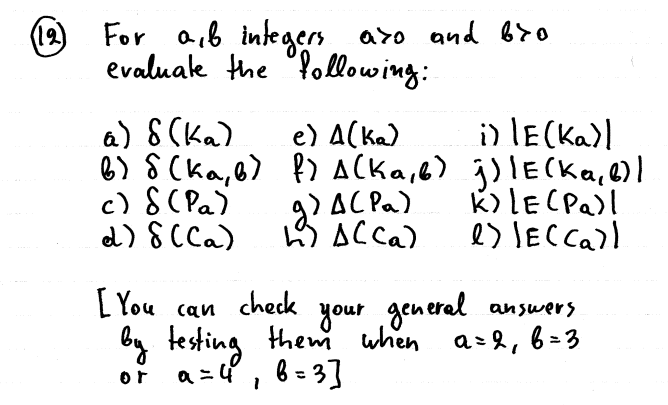 (12) For a,b integers a>0 and b>0
evaluate the following:
a) δ(Ka) e) Δ(Ka) i) |E(Ka)|
b) δ(Ka,b) f) Δ(Ka,b) j) |E(Ka,b)|
c) δ(Pa) g) Δ(Pa) k) |E(Pa)|
d) δ(Ca) h) Δ(Ca) l) |E(Ca)|
[You can check your general answers
by testing them when a=2, b=3
or a=4, b=3]